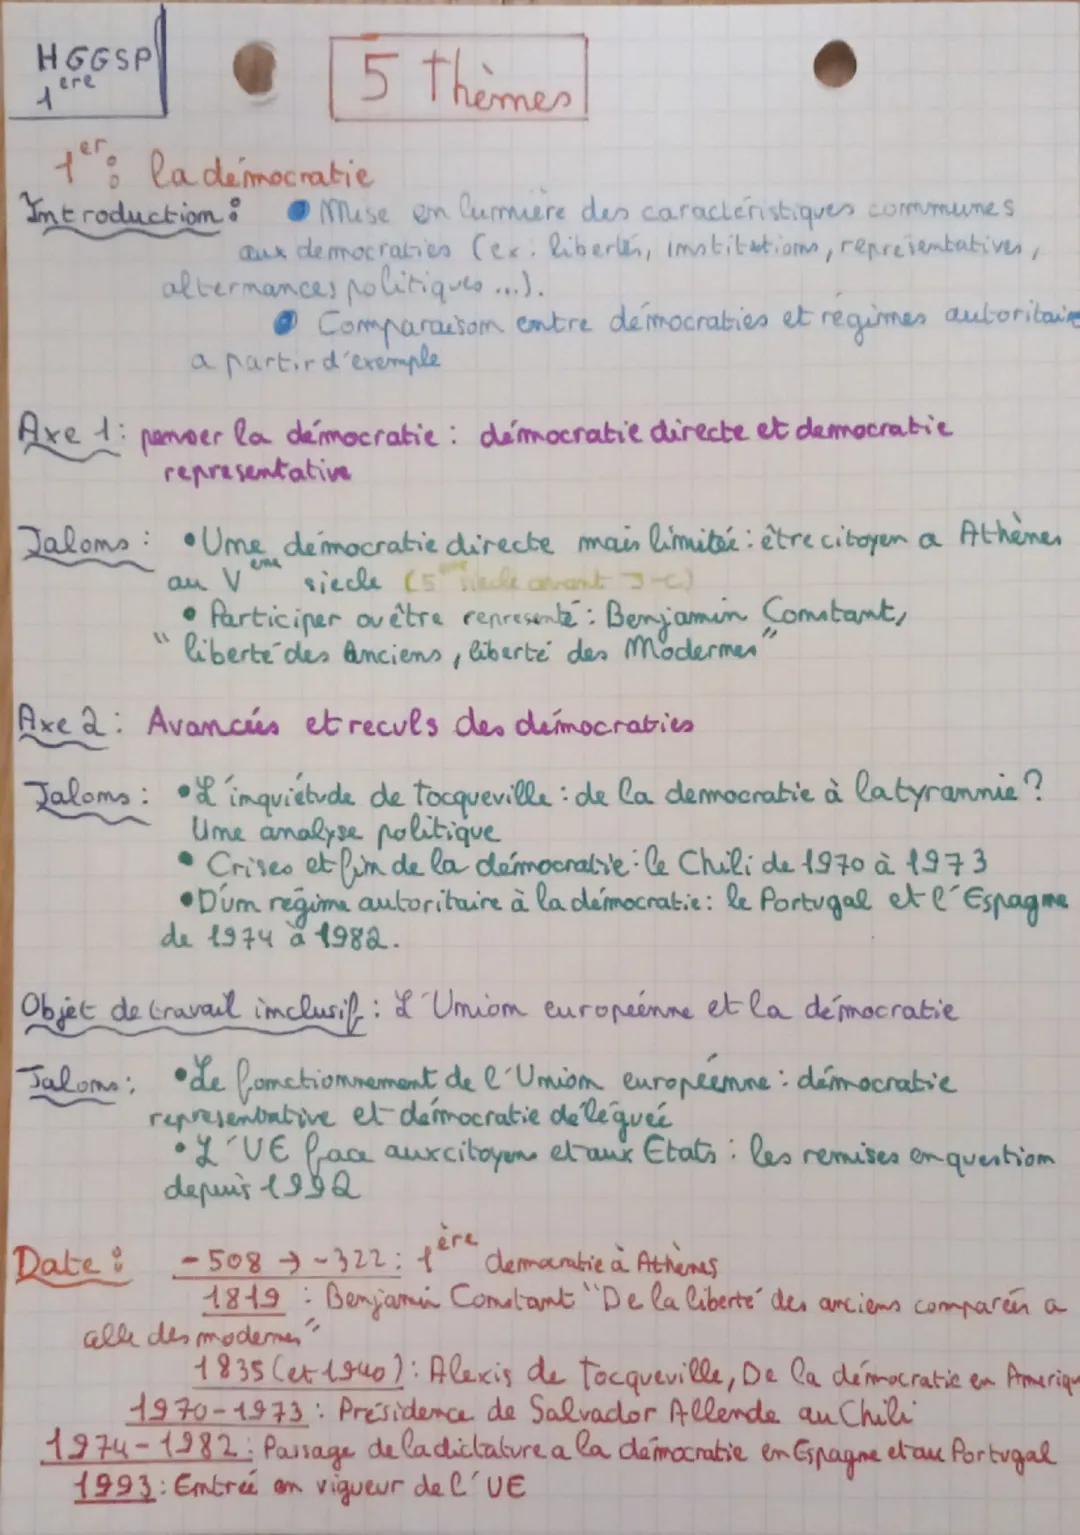 HGGSP
1ère
5 thèmes
1er : la démocratie
Introduction : • Mise en lumière des caractéristiques communes
aux democraties (ex : libertés, institutions, représentatives,
alternances politiques ...).
• Comparaison entre démocraties et régimes autoritaire
a partir d'exemple
Axe 1 : penser la démocratie : démocratie directe et democratie
representative
Jalons : • Une démocratie directe mais limitée : être citoyen a Athènes
au Vème siecle (5ème siecle avant J-C)
• Participer ou être representé : Benjamin Constant,
"liberté des Anciens, liberté des Modernes"
Axe 2 : Avancées et reculs des démocraties
Jalons : • L'inquiétude de Tocqueville : de la democratie à la tyrannie ?
Une analyse politique
• Crises et fin de la démocratie : le Chili de 1970 à 1973
• D'un régime autoritaire à la démocratie : le Portugal et l'Espagne
de 1974 à 1982.
Objet de travail inclusif : L'Union européenne et la démocratie
Jalons : • Le fonctionnement de l'Union européenne : démocratie
representative et démocratie déléguée
• L'UE face aux citoyens et aux Etats : les remises en question
depuis 1992
Date : -508 → -322 : 1ère democratie à Athènes
1819 : Benjamin Constant "De la liberté des anciens comparées a
celle des modernes"
1835 (et 1940) : Alexis de Tocqueville, De la démocratie en Ameriqu
1970-1973 : Présidence de Salvador Allende au Chili
1974-1982 : Passage de la dictature a la démocratie en Espagne et au Portugal
1993 : Entrée en vigueur de l'UE